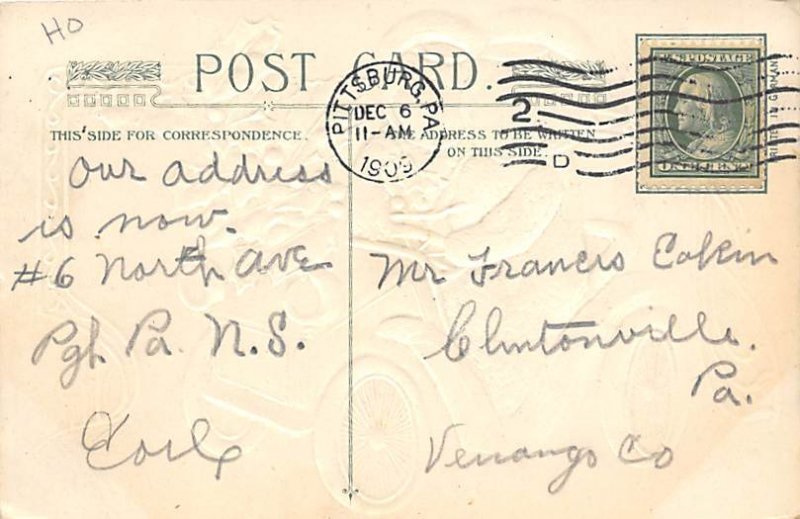 HO
POST CARD.
THIS SIDE FOR CORRESPONDENCE.
THE ADDRESS TO BE WRITTEN
ON THIS SIDE.
PITTSBURG, PA.
DEC 6
11-AM
1909
2
D
U.S. POSTAGE
ONE CENT
PRINTED IN GERMANY
Our address
is now.
#6 North Ave
Pgh Pa. N.S.
Earl
Mr Francis Eakin
Clintonville.
Pa.
Venango Co